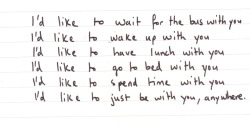 I'd like to wait for the bus with you
I'd like to wake up with you
I'd like to have lunch with you
I'd like to go to bed with you
I'd like to spend time with you
I'd like to just be with you, anywhere.